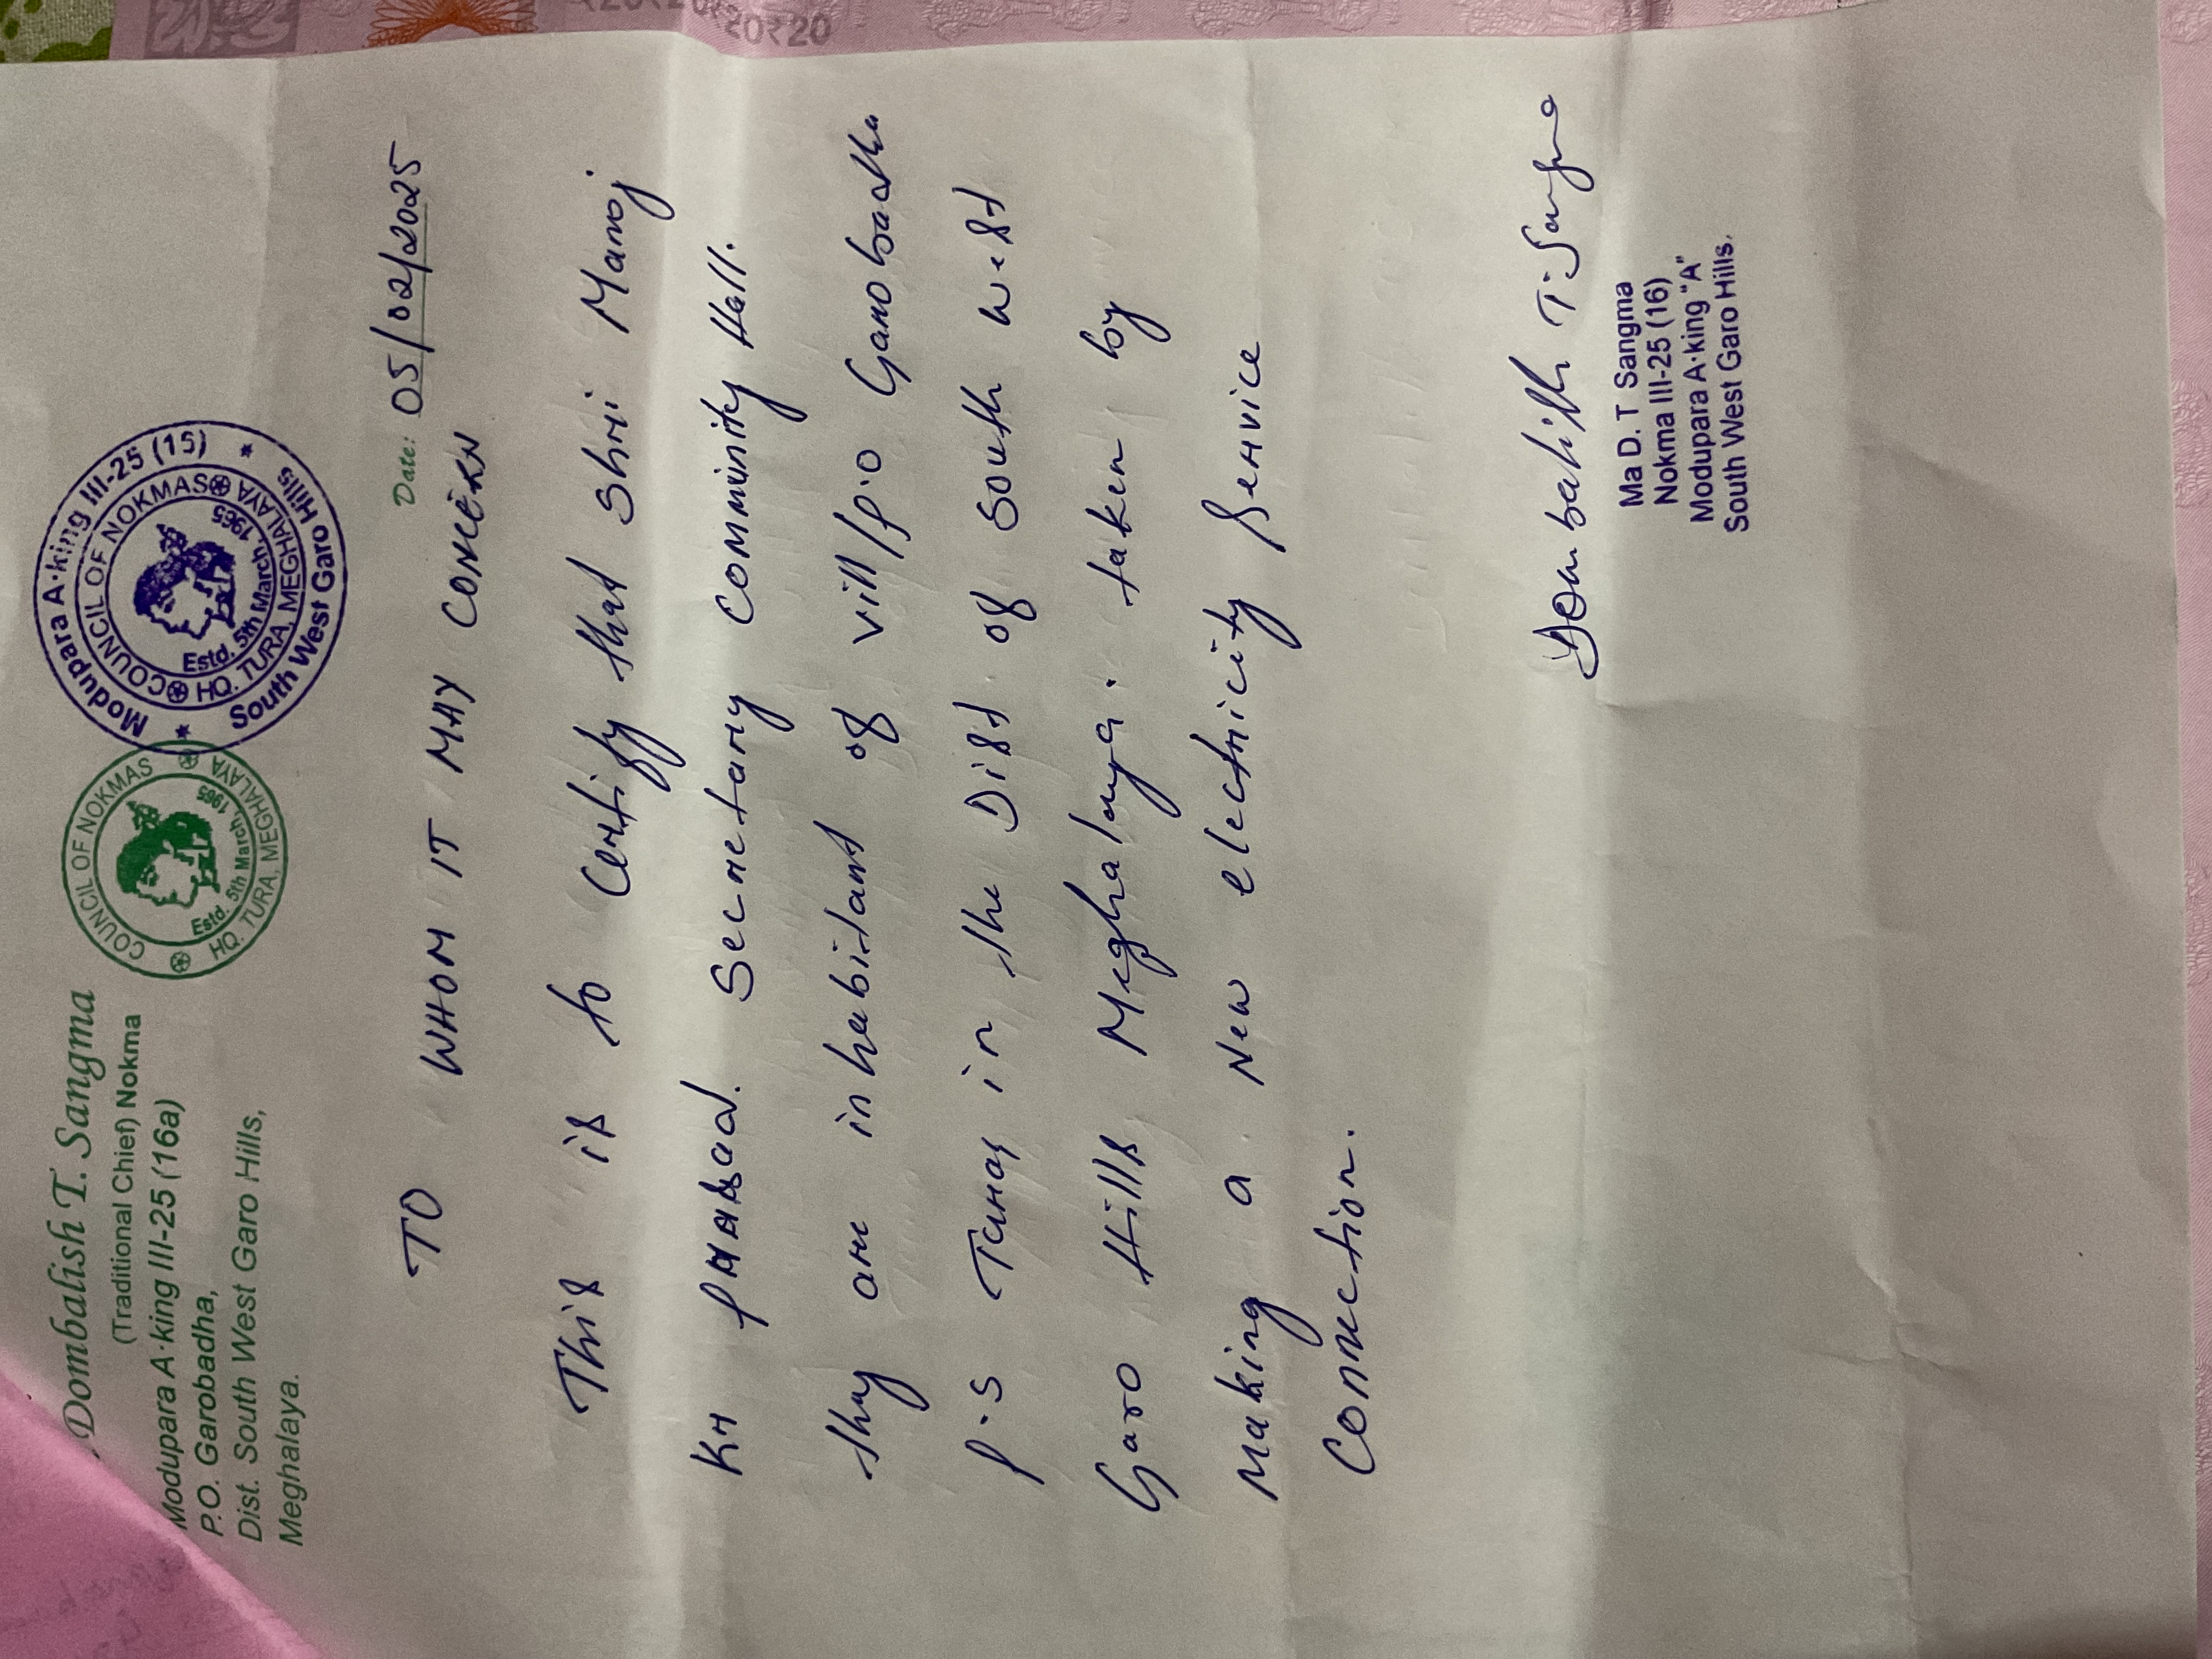 Dombalish T. Sangma
(Traditional Chief) Nokma
Modupara A·king III-25 (16a)
P.O. Garobadha,
Dist. South West Garo Hills,
Meghalaya.
COUNCIL OF NOKMAS
Estd. 5th March, 1965
HQ. TURA, MEGHALAYA
Modupara A·king III-25 (15)
COUNCIL OF NOKMAS
Estd. 5th March, 1965
HQ. TURA, MEGHALAYA
South West Garo Hills
Date: 05/02/2025
TO WHOM IT MAY CONCERN
This is to Certify that Shri Manoj
Kr Prasad. Secretary Community Hall.
they are inhabitant of vill/P.O Garobadha
P.S Turay in the Dist of South West
Garo Hills Meghalaya. taken by
Making a New electricity Service
Connection.
Dombalish T. Sangma
Ma D. T Sangma
Nokma III-25 (16)
Modupara A·king "A"
South West Garo Hills.
20₹20₹20